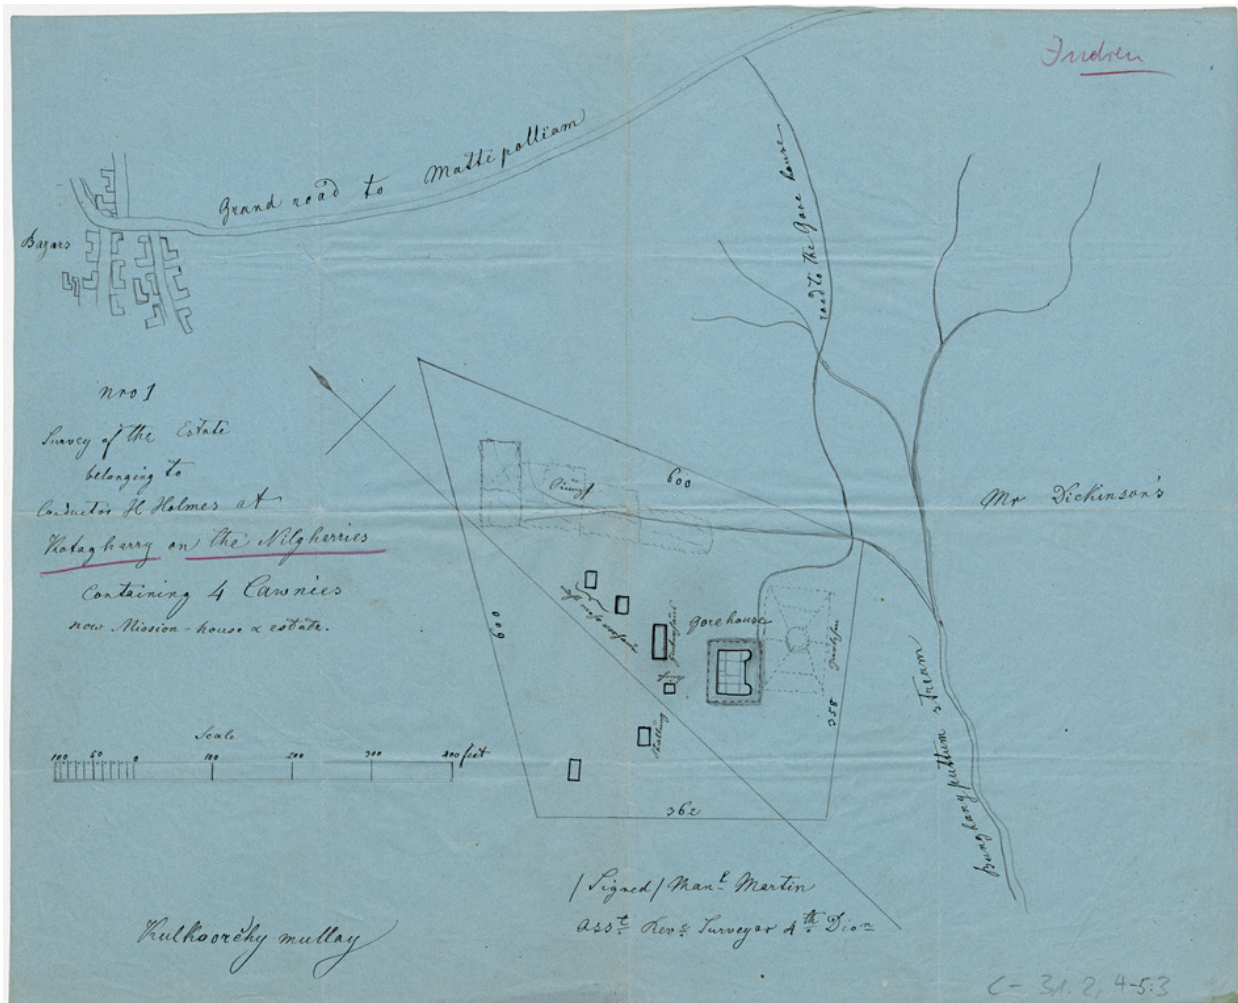 Indien
Grand road to Mattepolliam
Bazars
road to the Gore house
nro 1
Survey of the Estate
belonging to
Conductor H Holmes at
Kotagherry on the Nilgherries
containing 4 Cawnies
now Mission-house & estate.
600
Mr Dickinson's
600
Gorehouse
358
Stallung
362
Scale
100 50 0 100 200 300 400 feet
Bunghangputtum stream
(Signed) Manl. Martin
Asst. Revs. Surveyor 4th Dion
Kulkoorchy mullay
C-31.2, 4-5:3